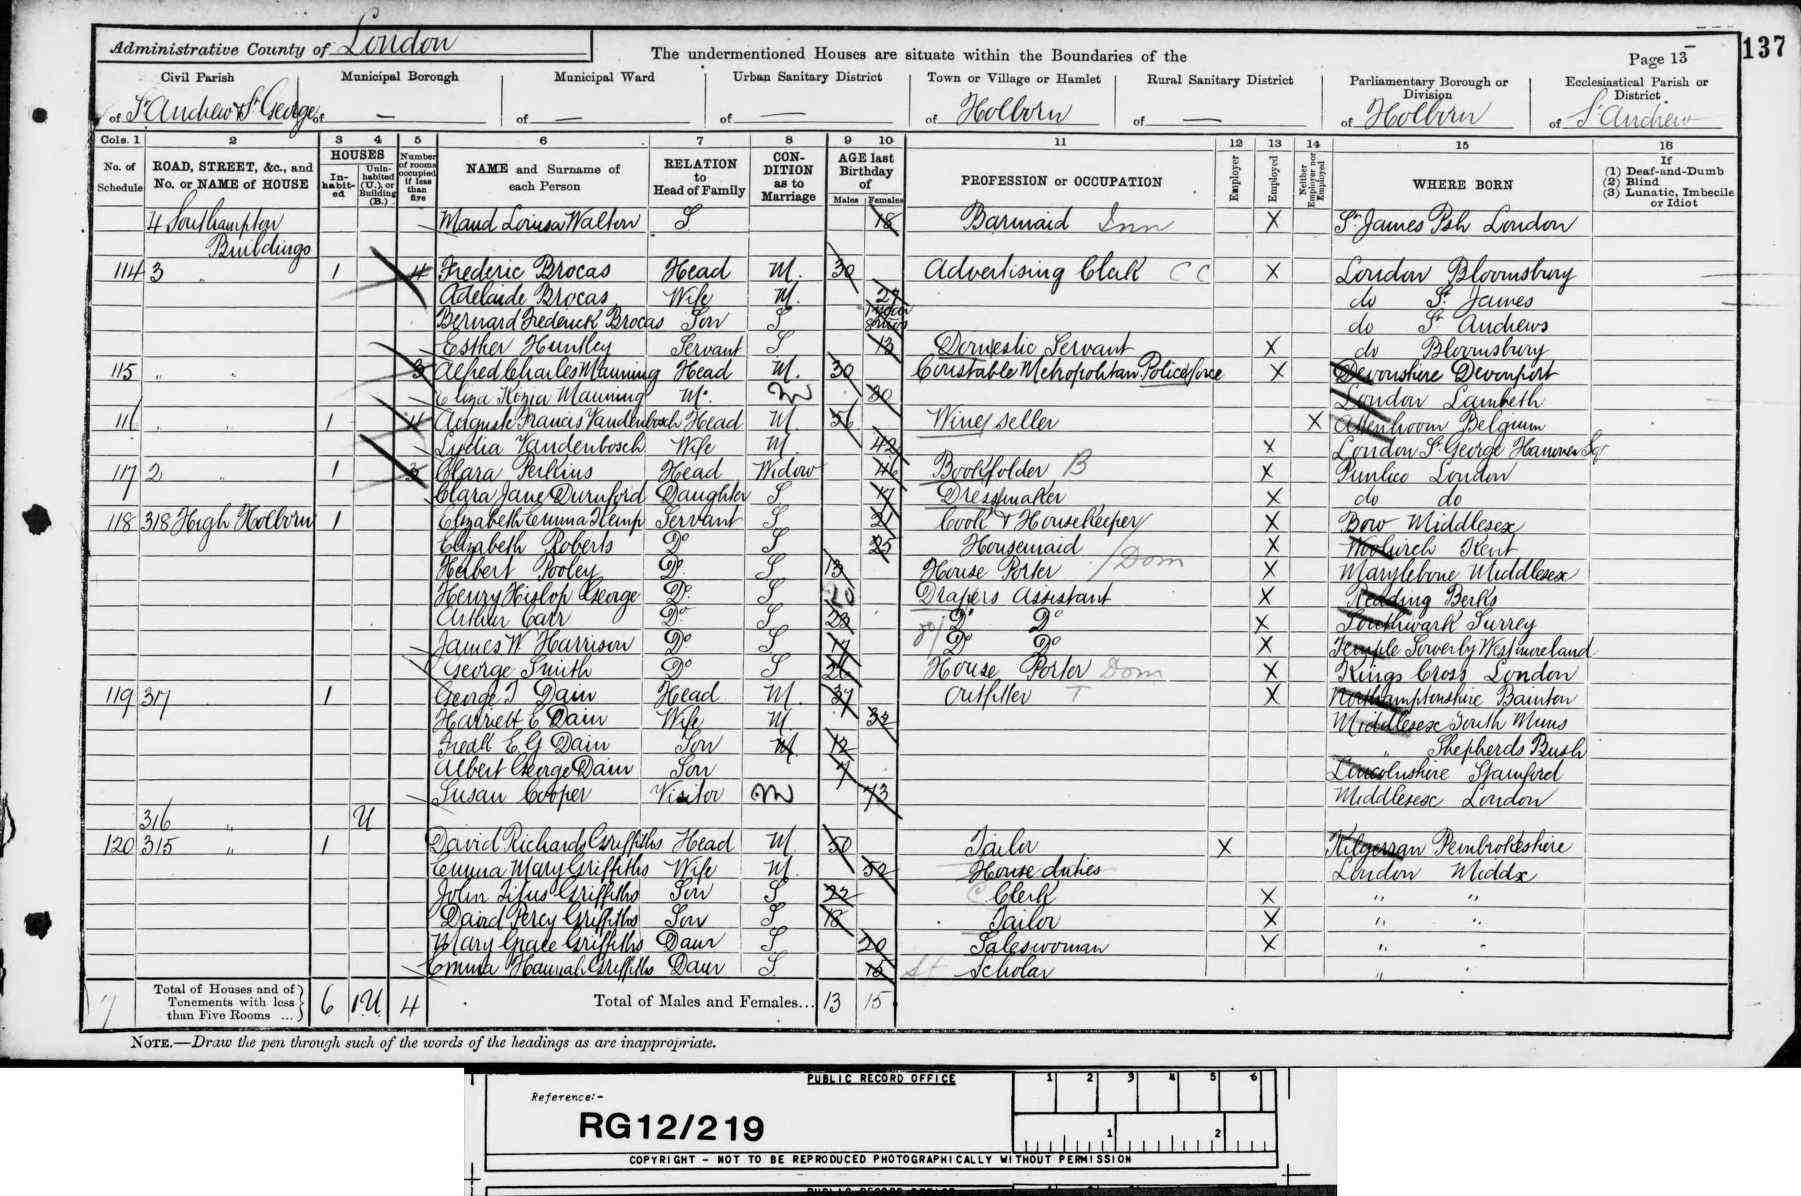 Administrative County of London
The undermentioned Houses are situate within the Boundaries of the
Page 13
137
Civil Parish Municipal Borough Municipal Ward Urban Sanitary District Town or Village or Hamlet Rural Sanitary District Parliamentary Borough or Division Ecclesiastical Parish or District
of St Andrew & St George of — of — of — of Holborn of — of Holborn of St Andrew
Cols. 1 2 3 4 5 6 7 8 9 10 11 12 13 14 15 16
No. of Schedule ROAD, STREET, &c., and No. or NAME of HOUSE HOUSES In-habit-ed Unin-habited (U.), or Building (B.) Number of rooms occupied if less than five NAME and Surname of each Person RELATION to Head of Family CON-DITION as to Marriage AGE last Birthday of Males Females PROFESSION or OCCUPATION Employer Employed Neither Employer nor Employed WHERE BORN If (1) Deaf-and-Dumb (2) Blind (3) Lunatic, Imbecile or Idiot
4 Southampton Maud Louisa Walton S 18 Barmaid Inn X St James Psh London
Buildings
114 3 " 1 4 Frederic Brocas Head M. 30 Advertising Clerk CC X London Bloomsbury
Adelaide Brocas Wife M. 27 do St James
Bernard Frederick Brocas Son S do St Andrews
Esther Huntley Servant S 13 Domestic Servant X do Bloomsbury
115 " " 3 Alfred Charles Manning Head M. 30 Constable Metropolitan Police force X Devonshire Devonport
Eliza Kezia Manning M. 30 London Lambeth
116 " " 1 4 Auguste Francis Vandenbosch Head M 56 Wine seller X Belgium
Lydia Vandenbosch Wife M 42 X London St George Hanover Sq
117 2 " 1 3 Clara Perkins Head Widow 46 Bookfolder B X Pimlico London
Clara Jane Durnford Daughter S 17 Dressmaker X do do
118 318 High Holborn 1 Elizabeth Emma Hemp Servant S 21 Cook & Housekeeper X Bow Middlesex
Elizabeth Roberts Do S 25 Housemaid X Woolwich Kent
Herbert Pooley Do S 13 House Porter Dom X Marylebone Middlesex
Henry Hislop George Do S Drapers Assistant X Reading Berks
Arthur Carr Do S 20 Do Do X Southwark Surrey
James W Harrison Do S 17 Do Do X Temple Sowerby Westmoreland
George Smith Do S 26 House Porter Dom X Kings Cross London
119 317 1 George T Dain Head M. 37 Outfitter T X Northamptonshire Bainton
Harriett E Dain Wife M 32 Middlesex South Mims
Fredk E G Dain Son 12 " Shepherds Bush
Albert George Dain Son 7 Lincolnshire Stamford
Susan Cooper Visitor 73 Middlesex London
316 " U
120 315 " 1 David Richards Griffiths Head M. 50 Tailor X Kilgerran Pembrokeshire
Emma Mary Griffiths Wife M. 52 House duties London Middx
John Titus Griffiths Son S 22 Clerk X " "
David Percy Griffiths Son S 18 Tailor X " "
Mary Grace Griffiths Daur S 20 Saleswoman X " "
Emma Hannah Griffiths Daur S. Scholar " "
Total of Houses and of Tenements with less than Five Rooms ... 6 1 U 4 Total of Males and Females... 13 15
NOTE.—Draw the pen through such of the words of the headings as are inappropriate.
PUBLIC RECORD OFFICE
1 2 3 4 5 6
Reference:-
RG12/219
1 2
COPYRIGHT - NOT TO BE REPRODUCED PHOTOGRAPHICALLY WITHOUT PERMISSION